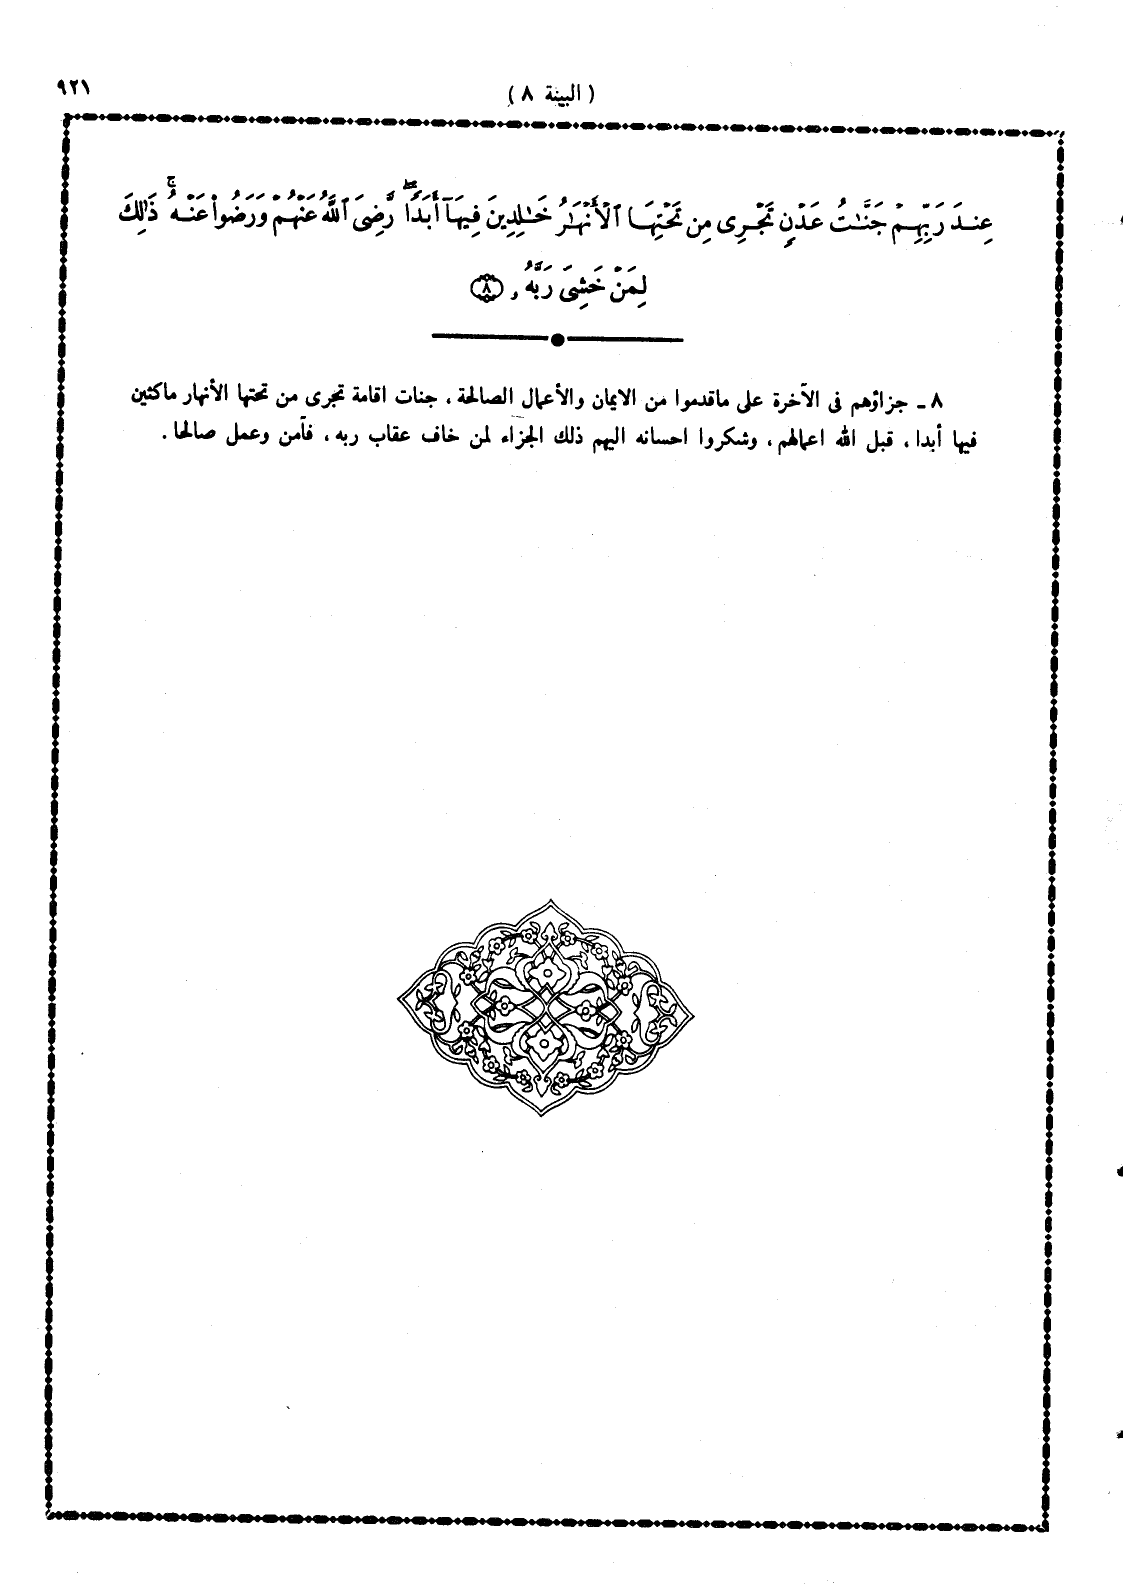 ( البينة ٨ )
٩٢١
عِندَ رَبِّهِمْ جَنَّـٰتُ عَدْنٍ تَجْرِى مِن تَحْتِهَا ٱلْأَنْهَـٰرُ خَـٰلِدِينَ فِيهَآ أَبَدًۭا ۖ رَّضِىَ ٱللَّهُ عَنْهُمْ وَرَضُوا۟ عَنْهُ ۚ ذَٰلِكَ
لِمَنْ خَشِىَ رَبَّهُۥ ٨
٨ ـ جزاؤهم فى الآخرة على ماقدموا من الايمان والأعمال الصالحة ، جنات اقامة تجرى من تحتها الأنهار ماكثين
فيها أبدا ، قبل الله اعمالهم ، وشكروا احسانه اليهم ذلك الجزاء لمن خاف عقاب ربه ، فآمن وعمل صالحا .